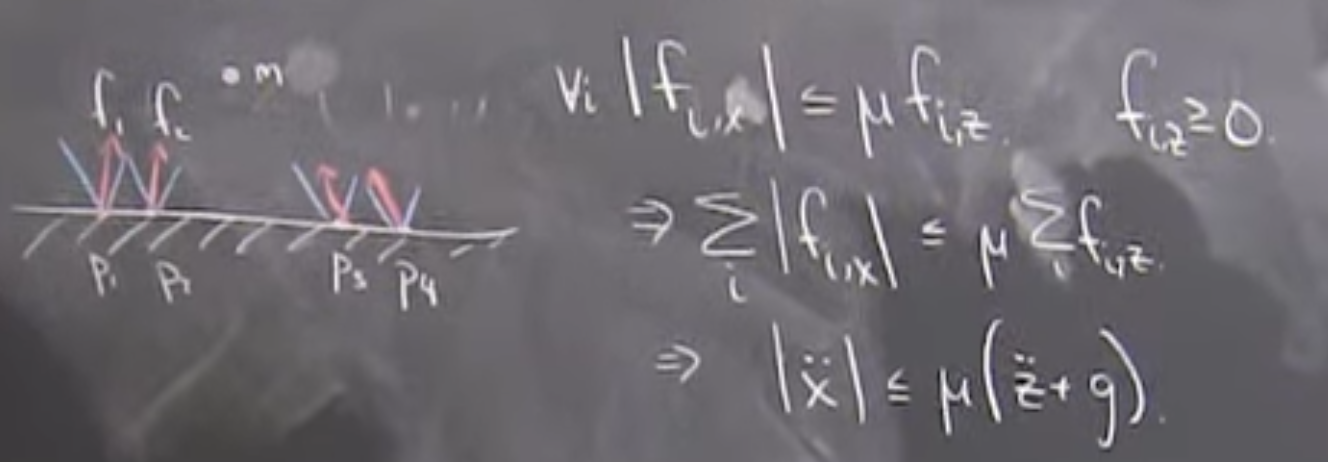 f₁ f₂ • m
p₁ p₂ p₃ p₄
∀i |f_{i,x}| ≤ μ f_{i,z}. f_{i,z} ≥ 0.
⇒ ∑_i |f_{i,x}| ≤ μ ∑_i f_{i,z}.
⇒ |ẍ| ≤ μ(z̈+g).